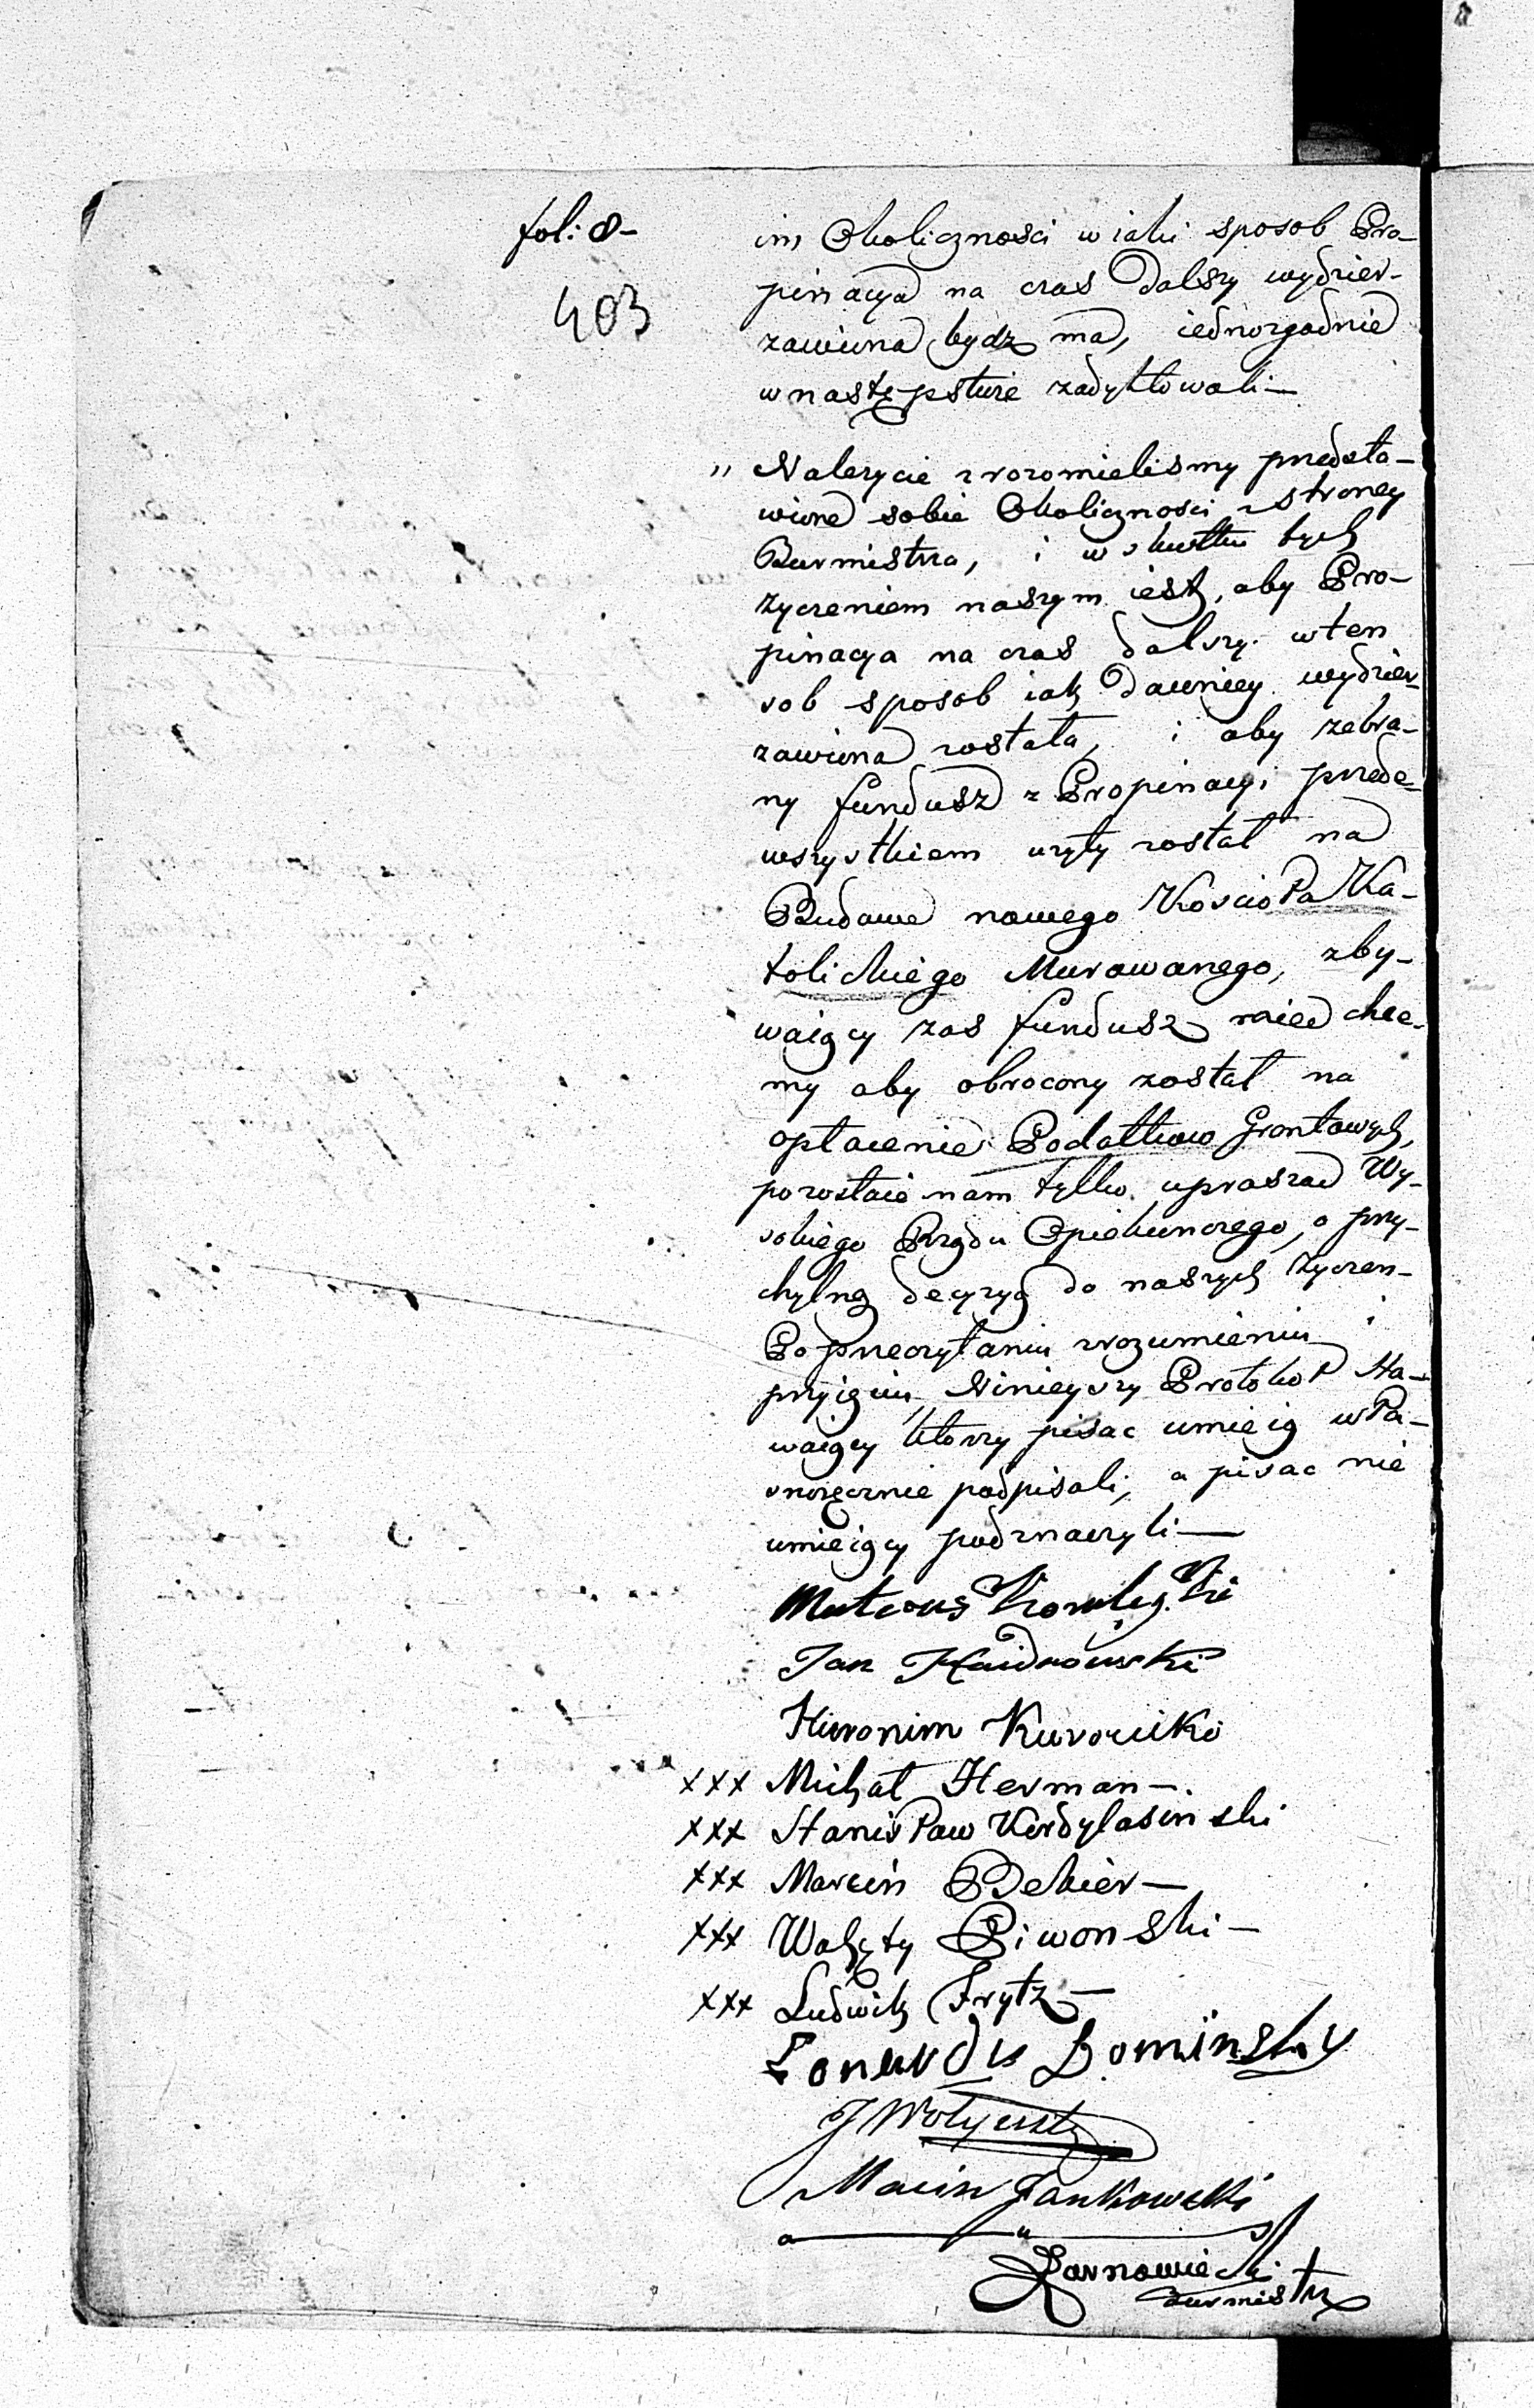 fol: 8-
403
im Okoliczności w iaki sposob Pro-
pinacya na czas dalszy wydzier-
zawiona bydz ma, iednozgodnie
w następstwie zadyktowali —
„ Nalezycie zrozomielismy predsta-
wione sobie Okoliczności z stroney
Burmistrza, i w skutku tych
zyczeniem naszym iest, aby Pro-
pinacya na czas dalszy w ten
sob sposob iak dawniey wydzier-
zawiona została, i aby zebra-
ny fundusz z Propinacyi przede-
wszystkiem uzyty został na
Budowe nowego Kościoła Ka-
tolickiego Murowanego, zby-
waiący zas fundusz miec chce-
my aby obrocony został na
opłacenie Podatkow Grontowych,
pozostaie nam tylko upraszac Wy-
sokiego Rządu Opiekunczego, o przy-
chylną decyzyą do naszych zyczen -
Po przeczytaniu zrozumieniu i
przyięciu, Ninieyszy Protokoł Sta-
waiący ktorzy pisac umieią wła-
snoręcznie podpisali, a pisac nie
umieiący podznaczyli —
Jan
Hieronim
xxx Michał Herman —.
xxx Stanisław Kordylasinski
xxx Marcin Bekier —
xxx Walęty Piwonski —
xxx Ludwik Frytz —
Dominsky
Jankowski
Burmistrz